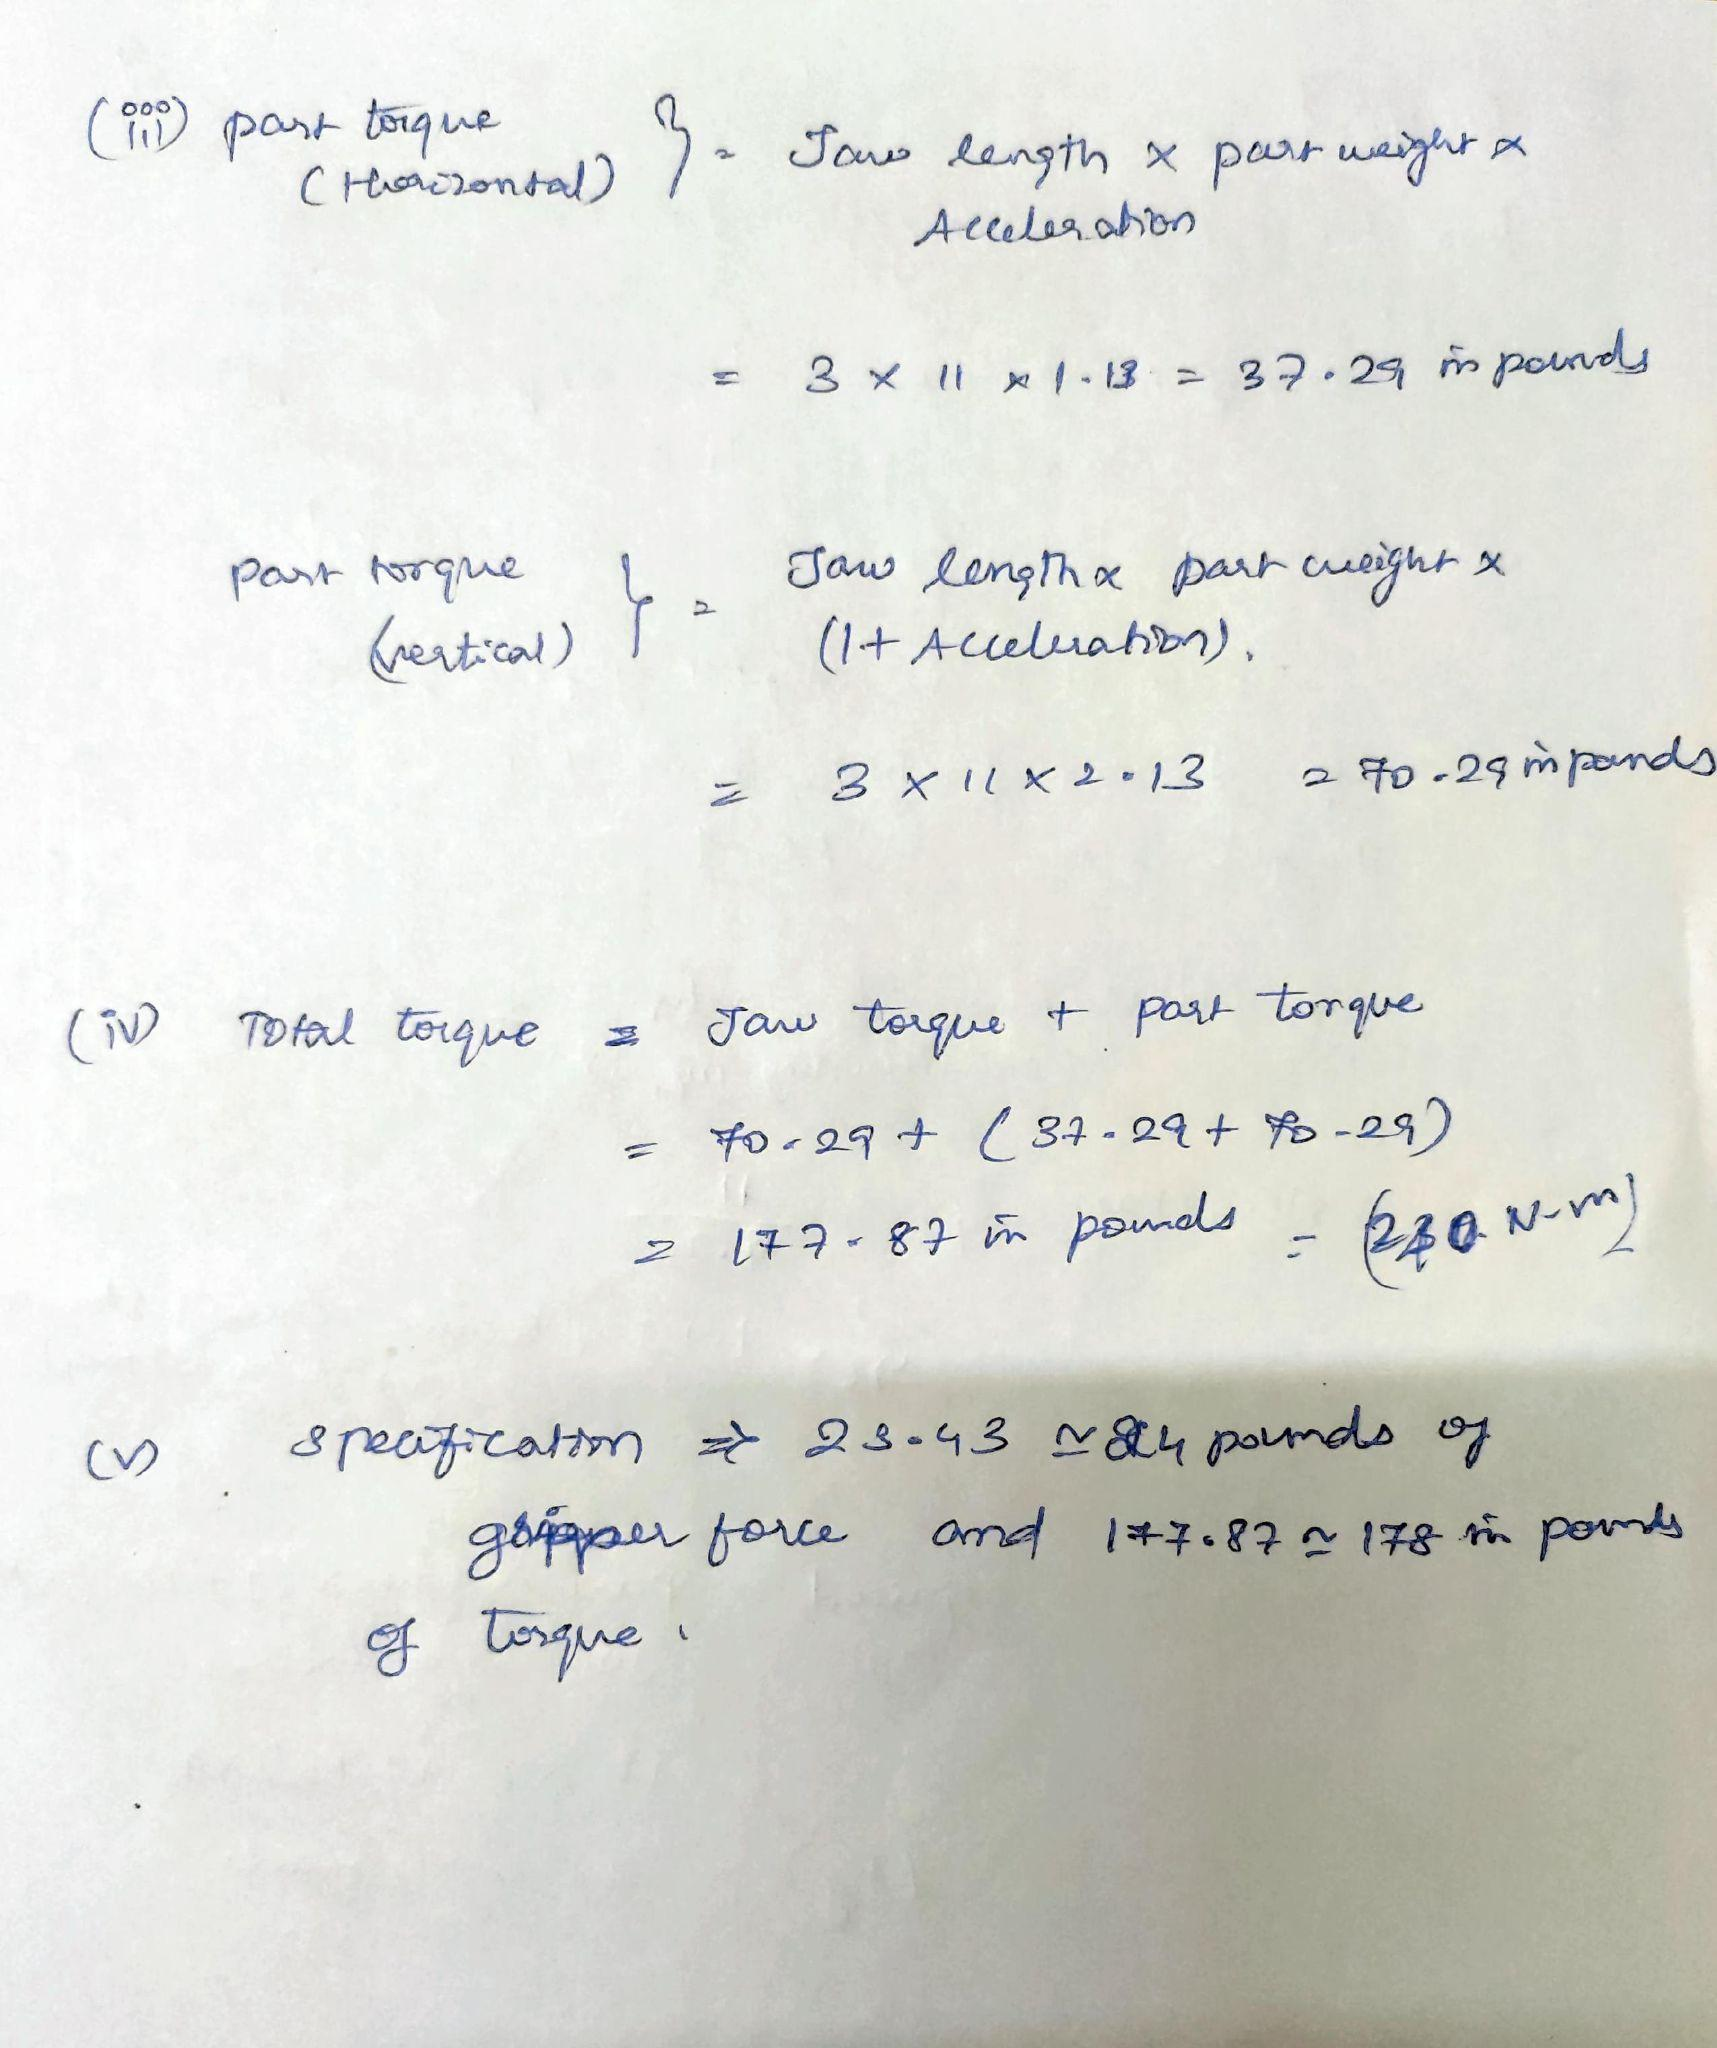 (iii) part torque
(Horizontal) } = Jaw length x part weight x
Acceleration
= 3 x 11 x 1.13 = 37.29 in pounds
part torque
(vertical) } = Jaw length x part weight x
(1+ Acceleration).
= 3 x 11 x 2.13 = 70.29 in pounds
(iv) Total torque = Jaw torque + part torque
= 70.29 + (37.29 + 70.29)
= 177.87 in pounds = ( N-m)
(v) specification ⇒ 23.43 ≃ 24 pounds of
gripper force and 177.87 ≃ 178 in pounds
of torque.